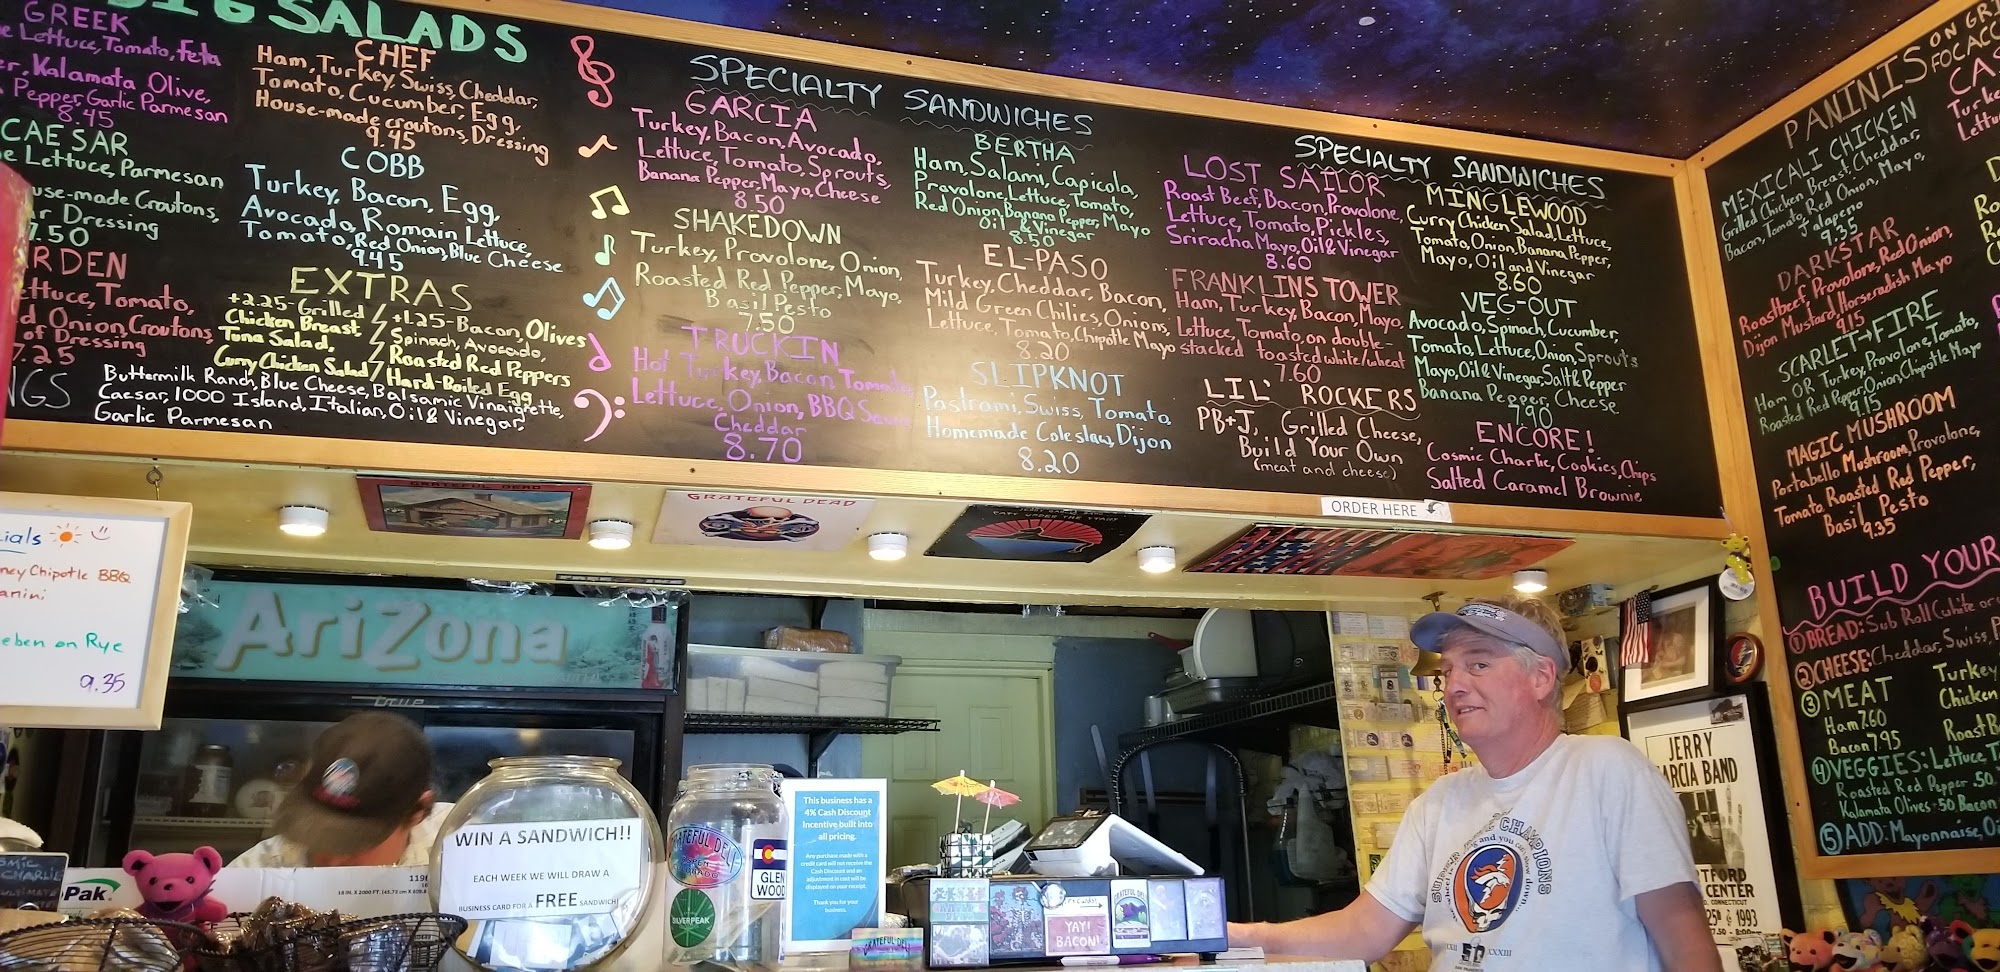 BIG SALADS
GREEK
Lettuce, Tomato, Feta
Kalamata Olive,
Pepper, Garlic Parmesan
8.45
CAESAR
Lettuce, Parmesan
House-made Croutons,
Dressing
7.50
Lettuce, Tomato,
Onion, Croutons,
of Dressing
7.25
CHEF
Ham, Turkey, Swiss, Cheddar,
Tomato, Cucumber, Egg,
House-made croutons, Dressing
9.45
COBB
Turkey, Bacon, Egg,
Avocado, Romain Lettuce,
Tomato, Red Onion, Blue Cheese
9.45
EXTRAS
+2.25-Grilled
Chicken Breast
Tuna Salad,
Curry Chicken Salad
+1.25-Bacon, Olives
Spinach, Avocado,
Roasted Red Peppers
Hard-Boiled Egg
Buttermilk Ranch, Blue Cheese, Balsamic Vinaigrette,
Caesar, 1000 Island, Italian, Oil & Vinegar,
Garlic Parmesan
SPECIALTY SANDWICHES
GARCIA
Turkey, Bacon, Avocado,
Lettuce, Tomato, Sprouts,
Banana Pepper, Mayo, Cheese
8.50
SHAKEDOWN
Turkey, Provolone, Onion,
Roasted Red Pepper, Mayo,
Basil Pesto
7.50
TRUCKIN
Hot Turkey, Bacon Tomato
Lettuce, Onion, BBQ Sauce
Cheddar
8.70
BERTHA
Ham, Salami, Capicola,
Provolone, Lettuce, Tomato,
Red Onion, Banana Pepper, Mayo
Oil & Vinegar
8.50
EL-PASO
Turkey, Cheddar, Bacon,
Mild Green Chilies, Onions,
Lettuce, Tomato, Chipotle Mayo
8.20
SLIPKNOT
Pastrami, Swiss, Tomato,
Homemade Coleslaw, Dijon
8.20
SPECIALTY SANDWICHES
LOST SAILOR
Roast Beef, Bacon, Provolone,
Lettuce, Tomato, Pickles,
Sriracha Mayo, Oil & Vinegar
8.60
FRANKLINS TOWER
Ham, Turkey, Bacon, Mayo,
Lettuce, Tomato on double-
stacked toasted white/wheat
7.60
LIL' ROCKERS
PB+J, Grilled Cheese,
Build Your Own
(meat and cheese)
MINGLEWOOD
Curry Chicken Salad, Lettuce,
Tomato, Onion, Banana Pepper,
Mayo, Oil and Vinegar
8.60
VEG-OUT
Avocado, Spinach, Cucumber,
Tomato, Lettuce, Onion, Sprouts
Mayo, Oil & Vinegar, Salt & Pepper
Banana Pepper, Cheese
7.90
ENCORE!
Cosmic Charlie, Cookies, Chips
Salted Caramel Brownie
PANINIS ON GRI
FOCACC
MEXICALI CHICKEN
Grilled Chicken Breast, Cheddar,
Bacon, Tomato, Red Onion, Mayo,
Jalapeno
9.35
DARKSTAR
Roastbeef, Provolone, Red Onion,
Dijon Mustard, Horseradish Mayo
9.15
SCARLET→FIRE
Ham OR Turkey, Provolone, Tomato,
Roasted Red Pepper, Onion, Chipotle Mayo
9.15
MAGIC MUSHROOM
Portabello Mushroom, Provolone,
Tomato, Roasted Red Pepper,
Basil Pesto
9.35
BUILD YOUR
① BREAD: Sub Roll (white or
② CHEESE: Cheddar, Swiss, P
③ MEAT
Ham 7.60
Bacon 7.95
Turkey
Chicken
Roast B
④ VEGGIES: Lettuce, T
Roasted Red Pepper .50
Kalamata Olives .50 Bacon
⑤ ADD: Mayonnaise, Oi
ORDER HERE
GRATEFUL DEAD
GRATEFUL DEAD
ials
ney Chipotle BBQ
anini
eben on Rye
9.35
AriZona
true
WIN A SANDWICH!!
EACH WEEK WE WILL DRAW A
BUSINESS CARD FOR A FREE SANDWICH
GRATEFUL DELI
SILVERPEAK
GLEN
WOOD
This business has a
4% Cash Discount
Incentive built into
all pricing.
Any purchase made with a
credit card will not receive the
Cash Discount and an
adjustment in cost will be
displayed on your receipt.
Thank you for your
business.
GRATEFUL DELI
YAY!
BACON!
JERRY
GARCIA BAND
CHARLIE
ULTIMATE
Pak